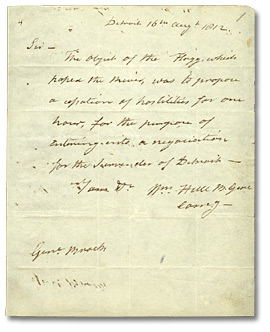 Detroit 16th Augt 1812.
Sir —
The Object of the Flagg, which
passed the River, was to propose
a cessation of hostilities for one
hour, for the purpose of
entering into a negociation
for the surrender of Detroit —
Yours &c Wm Hull B Genl
Comg —
Genl Brock